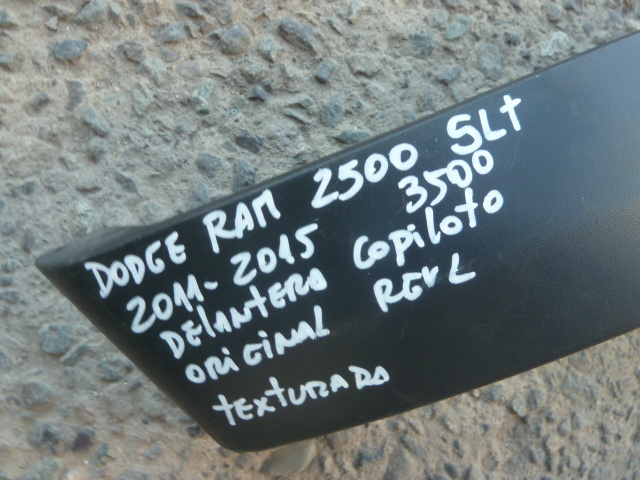 DODGE RAM 2500 SLT
2011-2015 3500
DELANTERO COPILOTO
ORIGINAL REVL
TEXTURADO